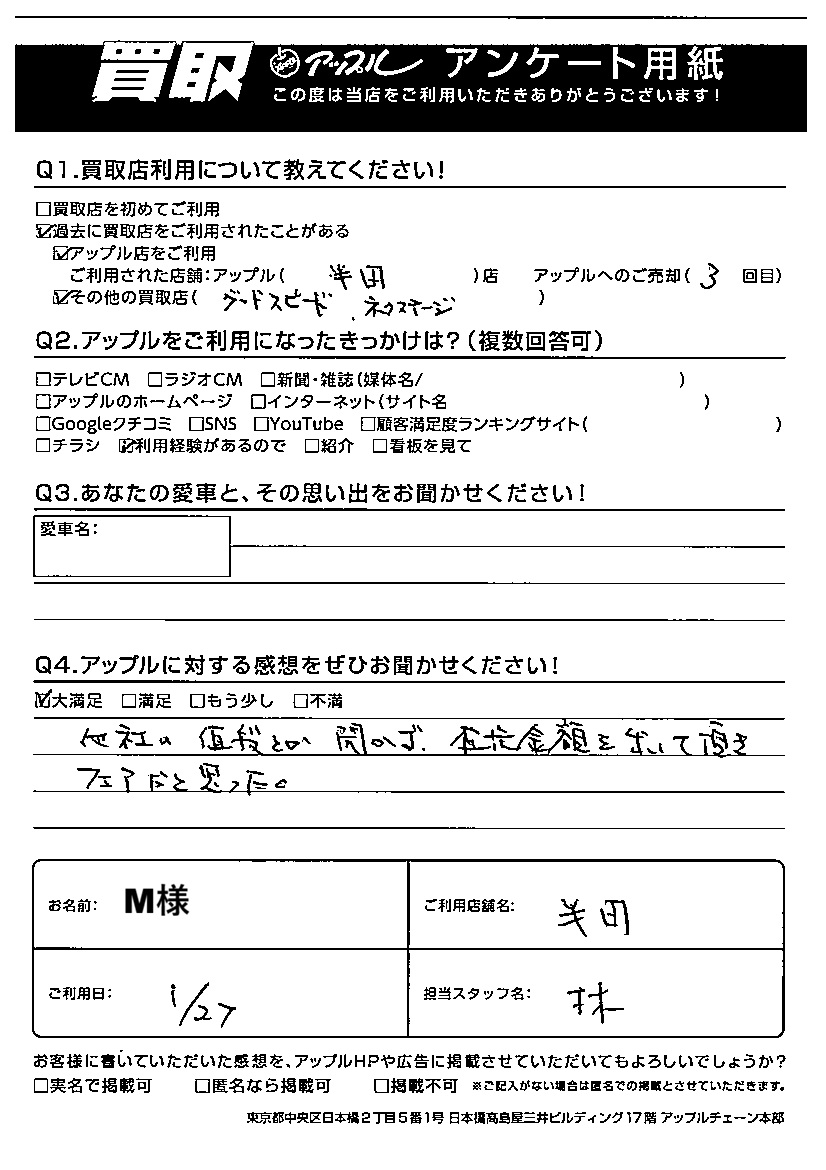 買取 アップル アンケート用紙
この度は当店をご利用いただきありがとうございます!
Q1.買取店利用について教えてください!
□買取店を初めてご利用
☑過去に買取店をご利用されたことがある
☑アップル店をご利用
ご利用された店舗:アップル( 半田 )店 アップルへのご売却( 3 回目)
☑その他の買取店( グッドスピード、ネクステージ )
Q2.アップルをご利用になったきっかけは?(複数回答可)
□テレビCM □ラジオCM □新聞・雑誌(媒体名/ )
□アップルのホームページ □インターネット(サイト名 )
□Googleクチコミ □SNS □YouTube □顧客満足度ランキングサイト( )
□チラシ ☑利用経験があるので □紹介 □看板を見て
Q3.あなたの愛車と、その思い出をお聞かせください!
愛車名:
Q4.アップルに対する感想をぜひお聞かせください!
☑大満足 □満足 □もう少し □不満
他社の値段とか聞かず、査定金額を出して頂き
フェアだと思った。
お名前: M様 ご利用店舗名: 半田
ご利用日: 1/27 担当スタッフ名: 林
お客様に書いていただいた感想を、アップルHPや広告に掲載させていただいてもよろしいでしょうか?
□実名で掲載可 □匿名なら掲載可 □掲載不可 ※ご記入がない場合は匿名での掲載とさせていただきます。
東京都中央区日本橋2丁目5番1号 日本橋髙島屋三井ビルディング17階 アップルチェーン本部